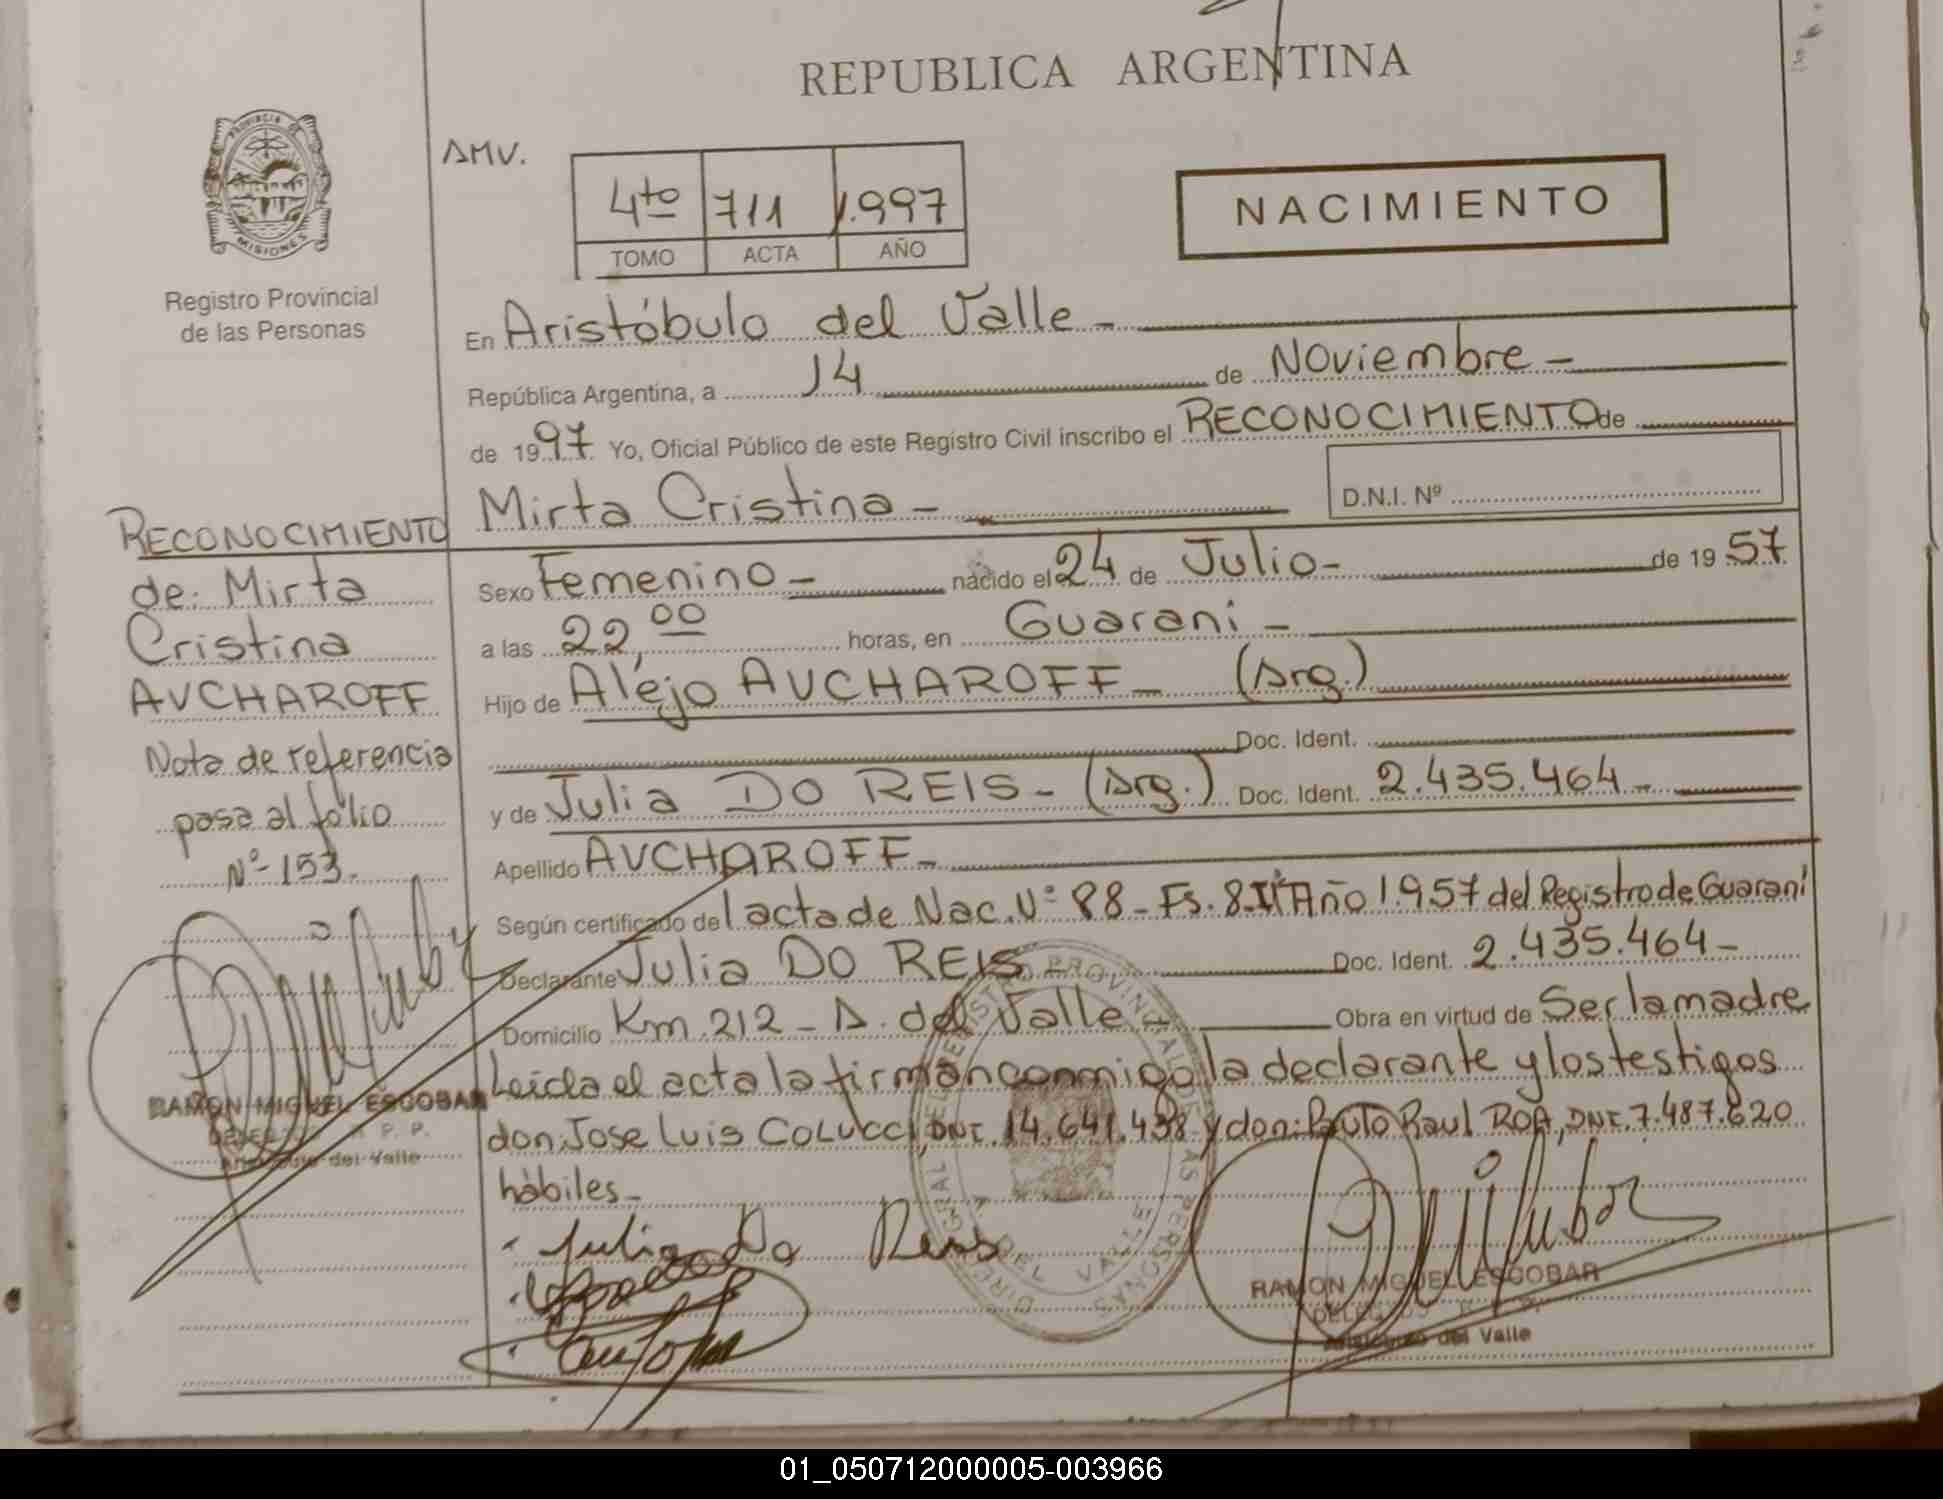 REPUBLICA ARGENTINA
PROVINCIA DE
MISIONES
Registro Provincial
de las Personas
AMV.
4to 711 1.997
TOMO ACTA AÑO
NACIMIENTO
En Aristóbulo del Valle -
República Argentina, a 14 de Noviembre -
de 1997 Yo, Oficial Público de este Registro Civil inscribo el RECONOCIMIENTO de
Mirta Cristina - D.N.I. Nº
Sexo Femenino - nacido el 24 de Julio - de 1957
a las 22,00 horas, en Guarani -
Hijo de Alejo AUCHAROFF - (Arg.)
Doc. Ident.
y de Julia DO REIS - (Arg.) Doc. Ident. 2.435.464 -
Apellido AUCHAROFF -
Según certificado del acta de Nac. Nº 88 - Fs. 8 - Iº Año 1.957 del Registro de Guaraní
Declarante Julia DO REIS - Doc. Ident. 2.435.464 -
Domicilio Km. 212 - A. del Valle - Obra en virtud de Ser la madre
Leída el acta la firman conmigo la declarante y los testigos
don: Jose Luis COLUCCI, DNI. 14.641.438 y don: Raul ROA, DNI. 7.487.620
hábiles -
Julia Do Reis
RECONOCIMIENTO
de: Mirta
Cristina
AUCHAROFF
Nota de referencia
pasa al fólio
Nº 153.
RAMON MIGUEL ESCOBAR
R. P. P.
Aristóbulo del Valle
RAMON MIGUEL ESCOBAR
DELEGADO R. P. P.
Aristóbulo del Valle
01_050712000005-003966